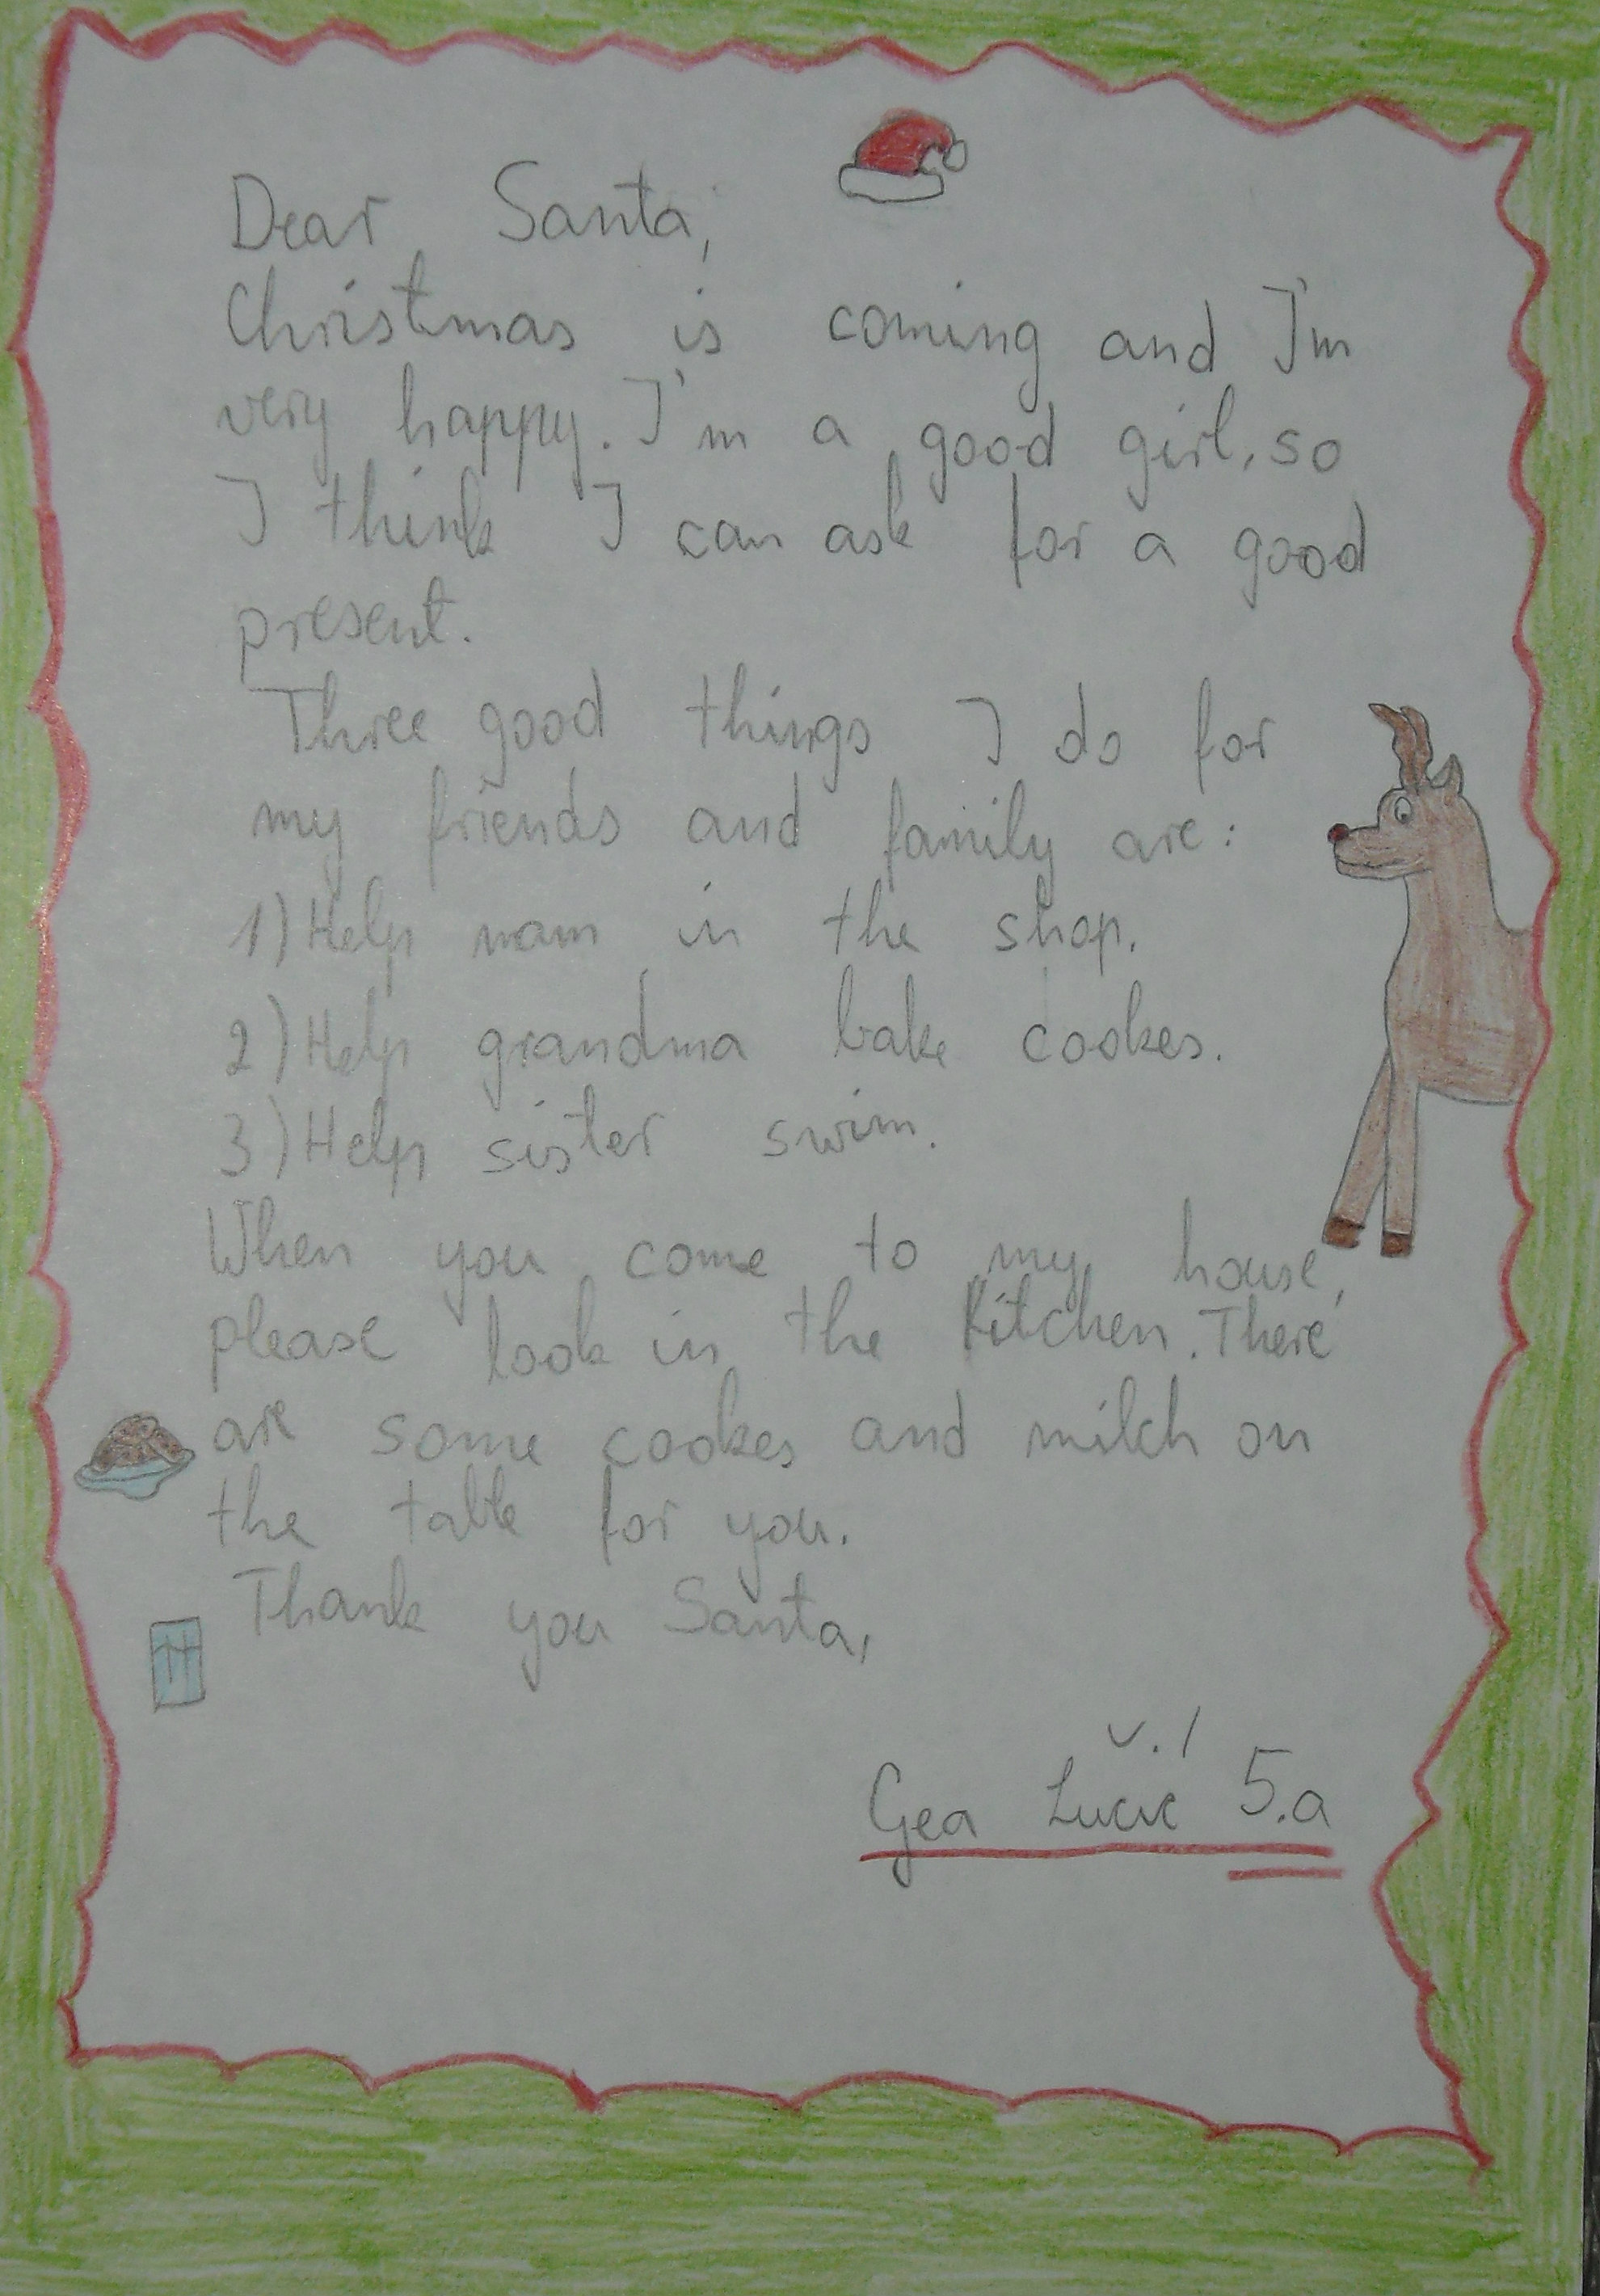 Dear Santa,
Christmas is coming and I'm
very happy. I'm a good girl, so
I think I can ask for a good
present.
Three good things I do for
my friends and family are:
1) Help mam in the shop.
2) Help grandma bake cookes.
3) Help sister swim.
When you come to my house,
please look in the kitchen. There
are some cookes and milch on
the table for you.
Thank you Santa,
Gea Lučić 5.a